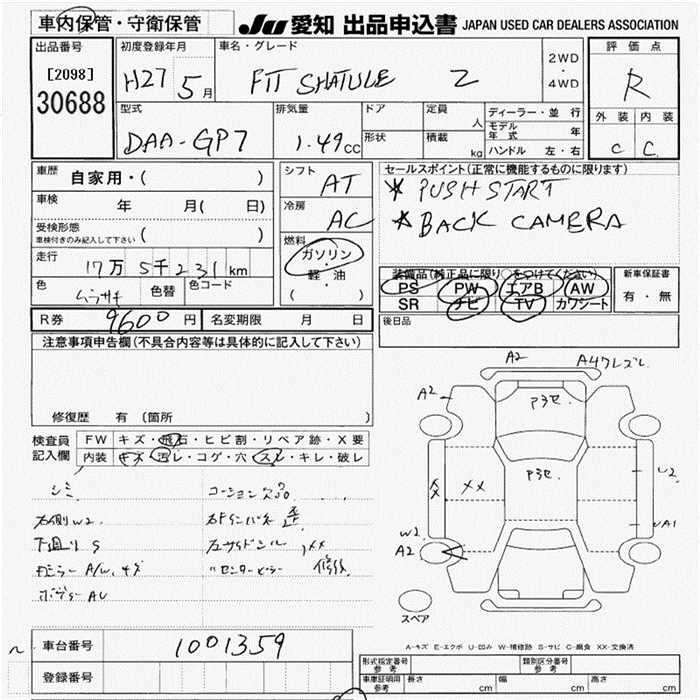 車内保管・守衛保管 JU 愛知 出品申込書 JAPAN USED CAR DEALERS ASSOCIATION
出品番号 初度登録年月 車名・グレード 2WD・4WD 評価点
[2098] H27 5月 FIT SHATULE 2 R
30688
型式 排気量 ドア 定員 人 ディーラー・並行 外装 内装
DAA-GP7 1.49cc 形状 積載 kg モデル年式 年 C C
ハンドル 左・右
車歴 自家用・( ) シフト AT セールスポイント(正常に機能するものに限ります)
車検 年 月( 日) 冷房 AC * PUSH START
受検形態 ( ) * BACK CAMERA
車検付きのみ記入して下さい
走行 17万5千231km 燃料 ガソリン・軽油 ( )
色 ムラサキ 色替 色コード
装備品(純正品に限り○をつけてください) 新車保証書
PS PW エアB AW 有・無
SR ナビ TV カワシート
R券 9600円 名変期限 月 日 後日品
注意事項申告欄(不具合内容等は具体的に記入して下さい)
修復歴 有 〔箇所
検査員記入欄 FW キズ・飛石・ヒビ割・リペア跡・X要
内装 キズ・汚レ・コゲ・穴・スレ・キレ・破レ
シミ
右側W2
下廻りS
ボディーAU
修後
A2 A4ワレズレ
A2 P3セ
P3セ
XX XX U2
UA1
W2
A2
スペア
A-キズ E-エクボ U-凹み W-補修跡 S-サビ C-腐食 XX-交換済
車台番号 1001359
登録番号
形式指定番号 参考 類別区分番号 参考
車庫証明用 参考 長さ cm 幅 cm 高さ cm